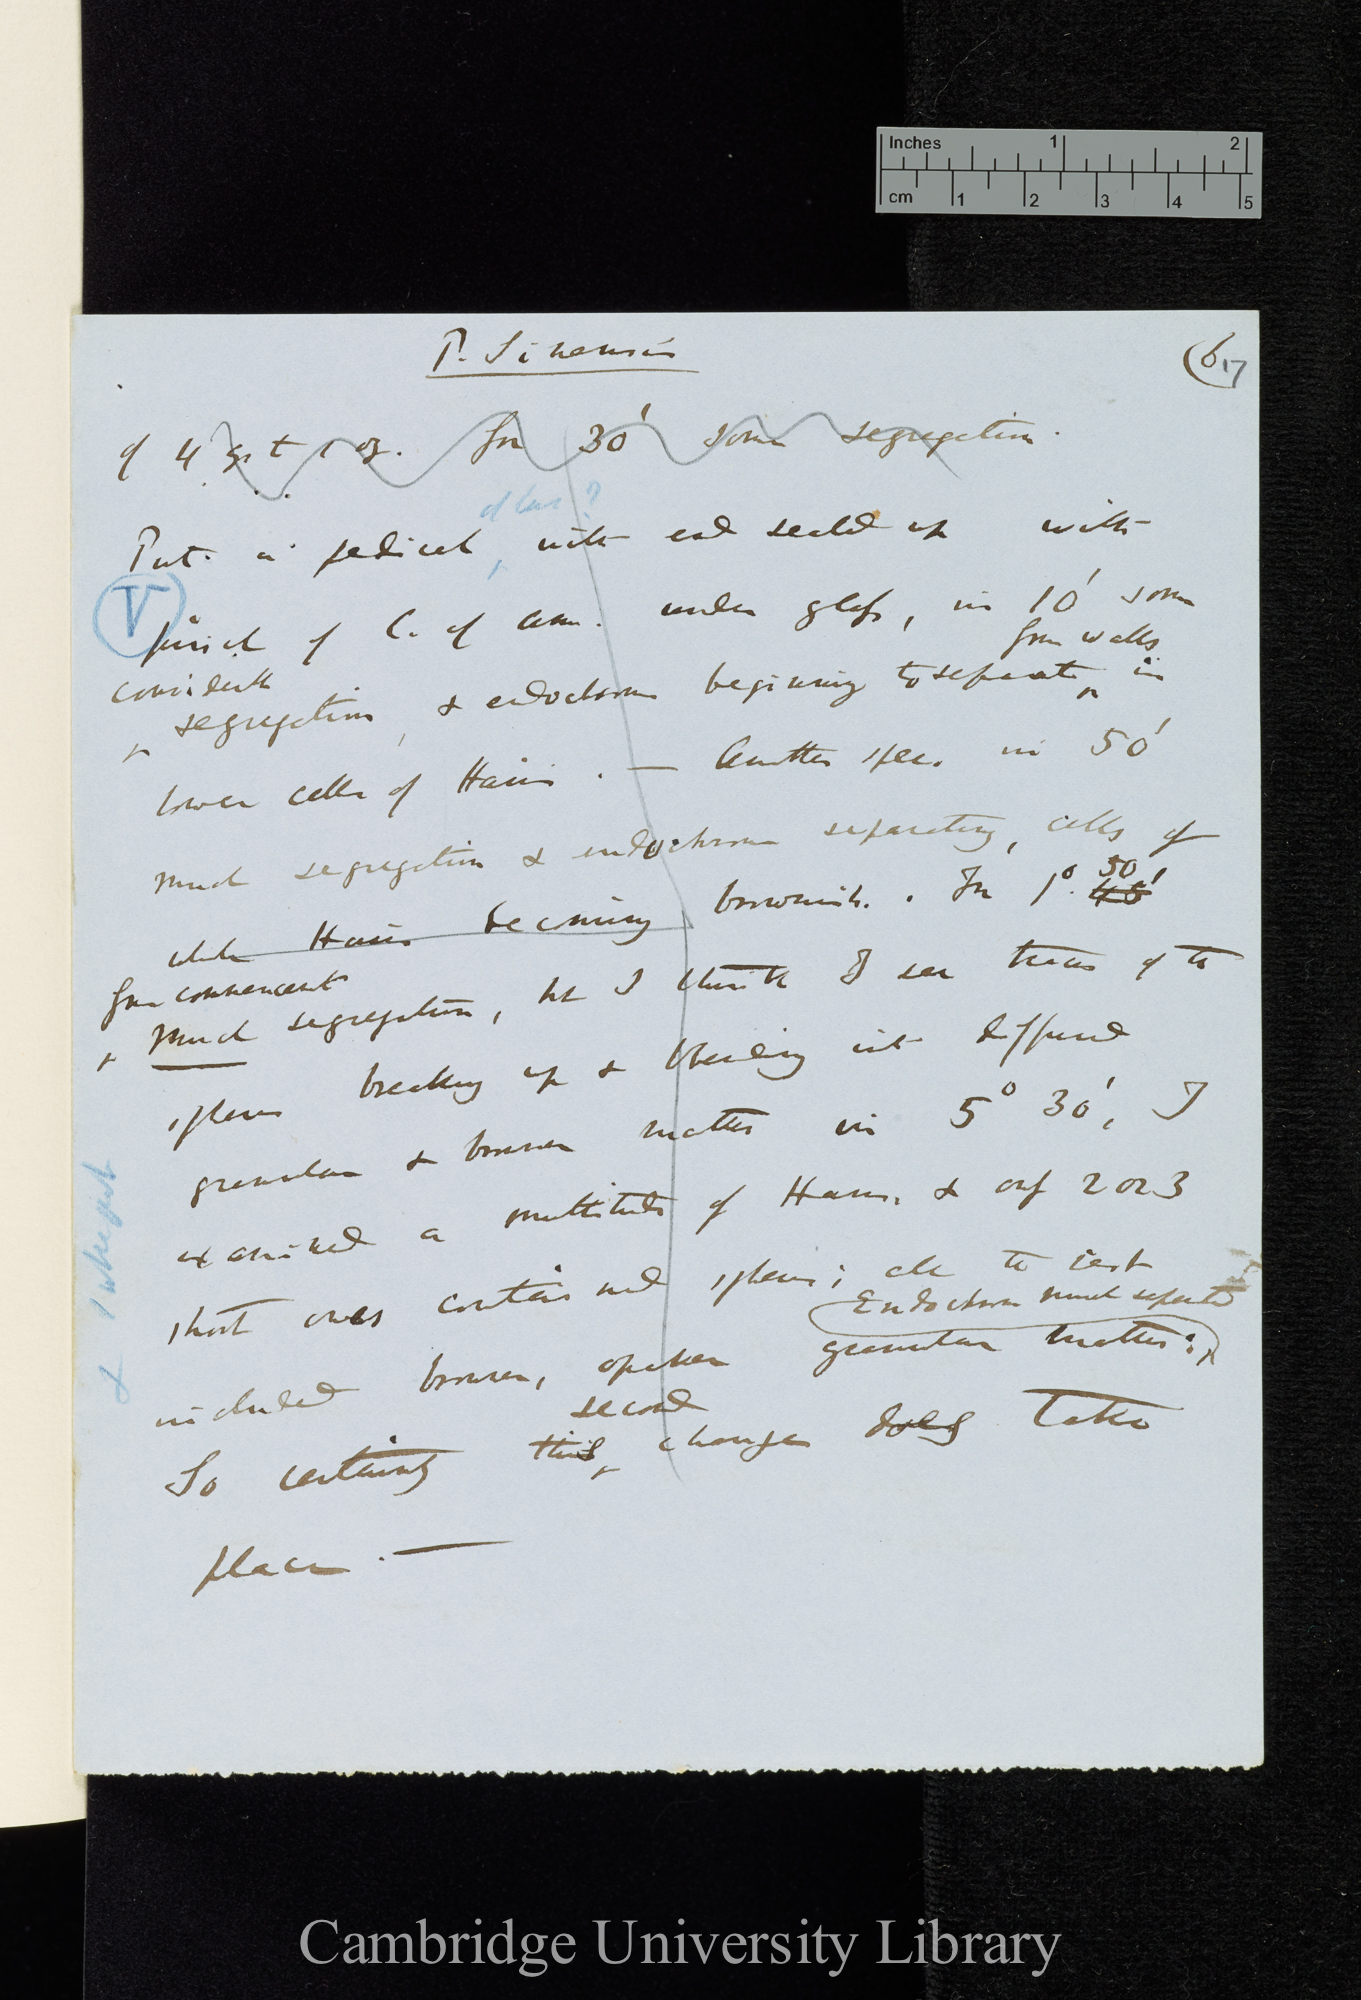 Inches 1 2
cm 1 2 3 4 5
P. Sinensis
(6
17
of 4 gr. t 1 oz. for 30' some segregation.
of leaf?
Put in pedicel, with end sealed up with
V
pinch of C. of Am. under glass, in 10' some
from walls
considerable
segregation, & endochrome beginning to separate in
lower cells of Hairs. — Another spec. in 50'
much segregation & endochrome separating, cells of
whole Hairs becoming brownish. . In 1° 50' 45'
from commencement
much segregation, but I think I see traces of the
spheres breaking up & blending into diffused
granular & brown matter in 5° 30', I
examined a multitude of Hairs, & only 2 or 3
short ones contained spheres; all the rest
Endochrome much separated
included brown, opaken granular matter;
second
So certainly this change does take
place. —
&
Cambridge University Library